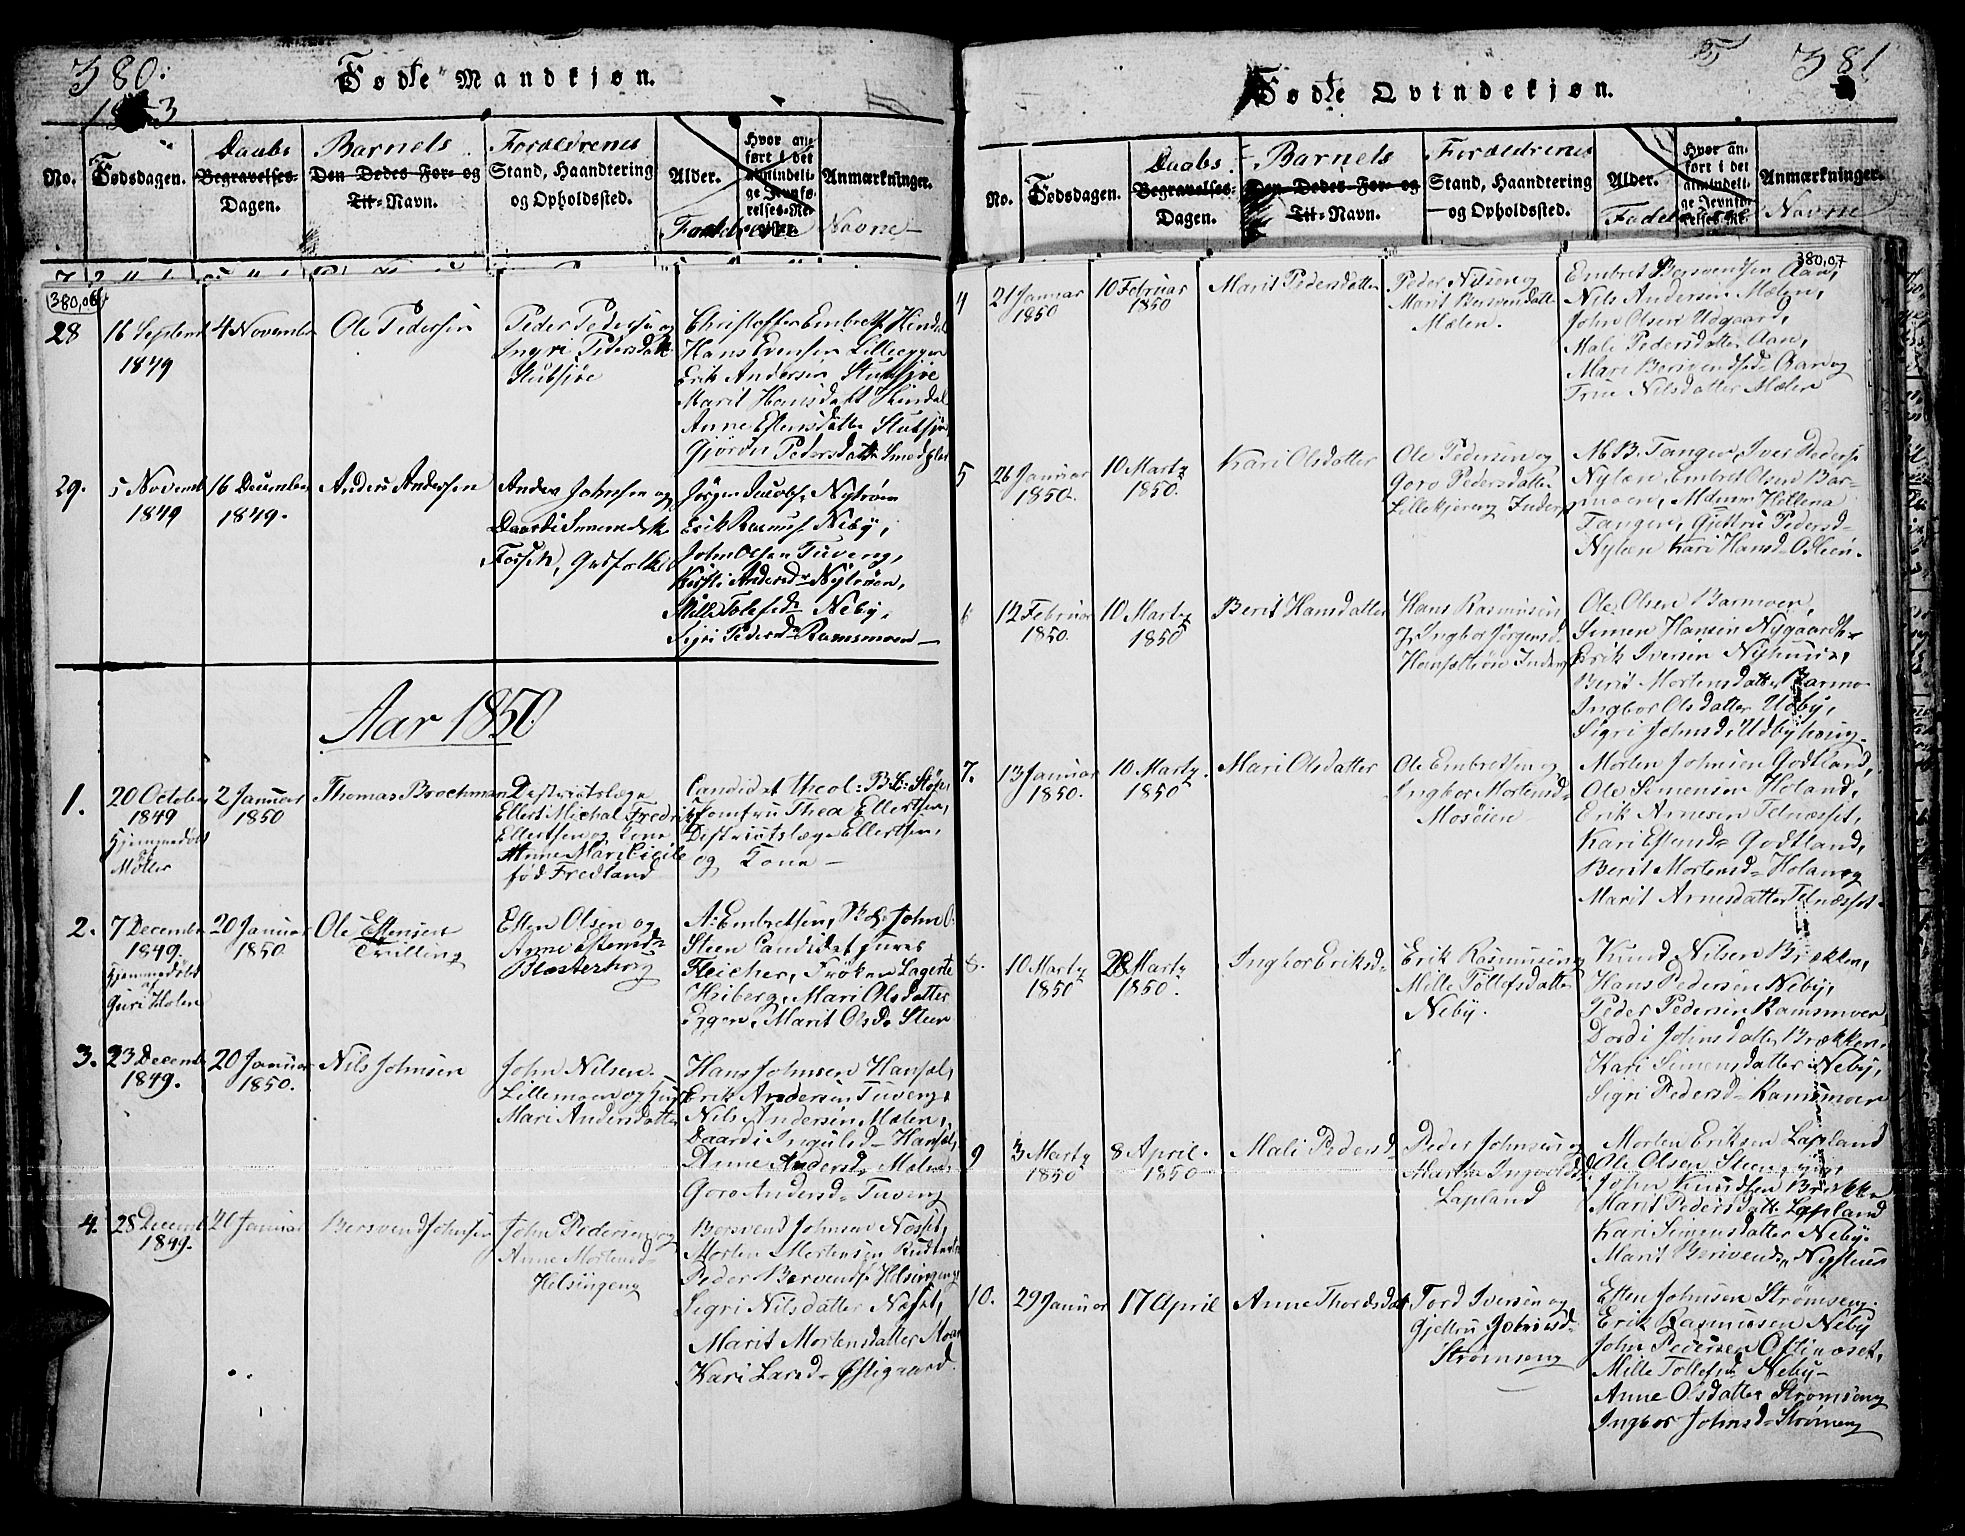 380.
Fødte Mandkjøn.
No.
Fødsdagen.
Daabs
Begravelses-
Dagen.
Barnets
Den Dødes For- og
Til-Navn.
Forældrenes
Stand, Haandtering
og Opholdssted.
Alder.
Hvor an-
ført i det
almindeli-
ge Jevnfø-
relses-Re-
gister.
Anmærkninger.
Faddernes Navne
380,06
28
16 Septemb
1849
4 November
Ole Pedersen
Peder Pedersen og
Ingri Pedersdatt
Stubsjøe
Christoffer Embrets Hindal
Hans Evensen Lilleeggen
Erik Andersen Stubsjøe
Marit Hansdatt Hindal
Anne Estensdatter Stubsjøe
Gjøron Pedersdatt
29.
5 Novemb
1849
16 December
1849.
Anders Andersen
Anders Johnsen og
Daardi Simensd
Jørgen Jacobs Nytrøen
Erik Rasmus Neby,
John Olsen Tuveng,
Kirsti Andersd Nytrøen,
Mille Tolefsd Neby,
Sigri Pedersd Ramsmoen
Aar 1850
1.
20 October
1849
Hjemmedøbt
af
Møller
2 Januar
1850
Thomas Brochman
Destrictslæge
Ellert Michal Fredrik
Ellertsen og Kone
Anne Mari Cicile
fød Fredland
Candidat theol: B. B: Støp
Jomfru Thea Ellertsen,
Destrictslæge Ellertsen,
og Kone
2.
7 Decemb
1849.
Hjemmedøbt
af
Guri Holen
20 Januar
1850.
Ole Estensen
Trilling
Esten Olsen og
Anne Estensd
Blæsterhoug
A: Embretsen, John O:
Steen Candidat juris
Fleicher, Frøken Lagerte
Heiberg, Mari Olsdatter
Eggen, Marit Olsd Steen
3.
23 Decemb
1849.
20 Januar
1850.
Nils Johnsen
John Nilsen
Lillemoen og Gift
Mari Andersdatter
Hans Johnsen Hansæl,
Erik Andersen Tuveng,
Nils Andersen Mælen,
Daardi Ingulsd Hansæl,
Anne Andersd Mælen,
Goro Andersd Tuveng
4.
28 Decemb
1849.
20 Januar
Bersvend Johnsen
John Pedersen og
Anne Mortensd
Helsingeng
Bersvend Johnsen Næsset,
Morten Mortensen
Peder Bersvends Helsingeng
Sigri Nilsdatter Næset,
Marit Mortensdatter Moan
Kari Larsd Østigaard.
381
Fødte Qvindekjøn.
No.
Fødsdagen.
Daabs
Begravelses-
Dagen.
Barnets
Den Dødes For- og
Til-Navn.
Forældrenes
Stand, Haandtering
og Opholdssted.
Alder.
Hvor an-
ført i det
almindeli-
ge Jevnfø-
relses-Re-
Anmærkninger.
Faddernes Navne
380,07
4
21 Januar
1850
10 Februar
1850
Marit Pedersdatter
Peder Nilsen og
Marit Bersvendsdatt
Mælen.
Embret Bersvendsen Aan,
Nils Andersen Mælen,
John Olsen Udgaard,
Mali Pedersdatter Aan,
Mari Bersvendsd Aan og
True Nilsdatter Mælen
5
26 Januar
1850.
10 Marty
1850.
Kari Olsdatter
Ole Pedersen og
Goro Pedersdatter
Lillekjøreng Inders
M B. Tangen, Iver Peders
Nylæn Embret Olsen Bar-
moen, Hellena
Tangen, Gjertru Pedersd
Nylæn Kari Hansd
6
12 Februar
1850.
10 Marty
1850
Berit Hansdatter
Hans Rasmusen
og Ingbor Jørgensd
Ole Olsen Barmoen,
Simen Hansen Nygaard
Erik Iversen Nyhuus,
Berit Mortensdatter Barmo
Ingbor Olsdatter Udby,
Sigri Johnsd Udbyhoug
7.
13 Januar
1850.
10 Marty
1850
Mari Olsdatter
Ole Embretsen og
Ingbor Mortensd
Mosøien
Morten Johnsen Godtland,
Ole Simensen Holand,
Erik Arnesen Telnæsset,
Kari Estensd Godtland,
Berit Mortensd Holan og
Marit Arnesdatter Telnæsset
8.
10 Marty
1850
28 Marty
1850.
Ingbor Eriksd
Erik Rasmusen og
Mille Tollefsdatter
Neby.
Knud Nilsen Brækken,
Hans Pedersen Neby,
Peder Pedersen Ramsmoen
Dordi Johnsdatter Brækken,
Kari Simensdatter Neby,
Sigri Pedersd Ramsmoen
9
3 Marty
1850
8 April.
1850
Mali Pedersd
Peder Johnsen og
Martha Ingvoldsd
Lapland
Morten Eriksen Lapland
Ole Olsen Steengrius
John Knudsen Brække
Marit Pedersdatt Lapland
Kari Simensdatter Neby.
Marit Bersvends Nysthus
10.
29 Januar
17 April
Anne Thordsdatt
Tord Iversen og
Gjertru
Strømseng
Esten Johnsen Strømseng.
Erik Rasmusen Neby
John Pedersen Oftinæset,
Mille Tollefsd Neby
Anne Olsdatter Strømseng
Ingbor Johnsd Strømeng